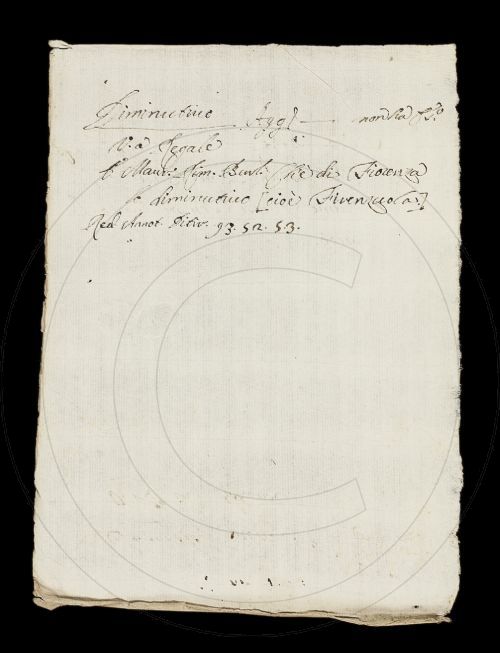 Diminutivo Agg! non ha Es.o
V. a Legale
L. Maur. Rim. Burl. Chè di Fiorenza
Se diminutivo [cioè Firenzuola]
Red. Annot. Ditir. 93. 52. 53.